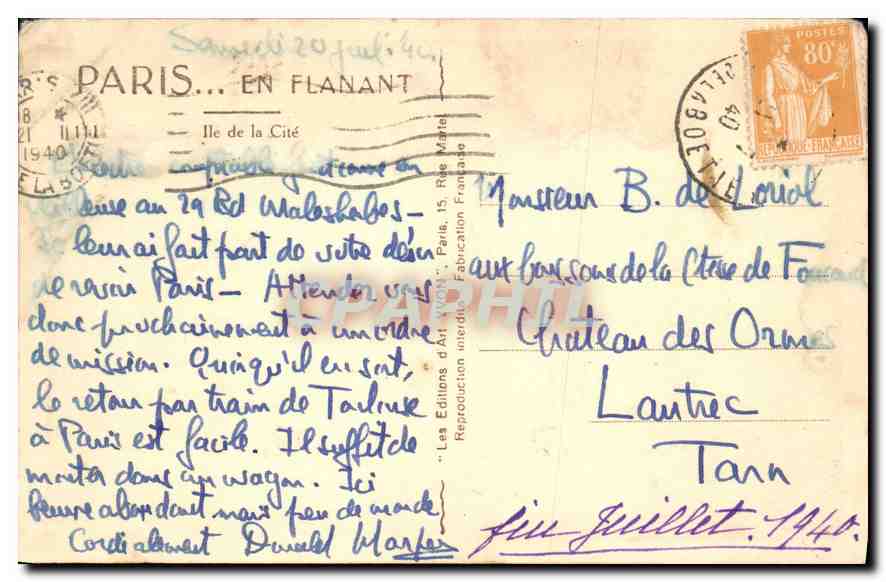 Samedi 20 juil. 40
PARIS... EN FLANANT
Ile de la Cité
21
1940
au 29 Bd Malesherbes -
leur ai fait part de votre désir
de revoir Paris - Attendez vous
donc prochainement à un ordre
de mission. Quoiqu'il en soit,
le retour par train de Toulouse
à Paris est facile. Il suffit de
monter dans un wagon. Ici
beurre abondant mais peu de monde
Cordialement Donald
"Les Editions d'Art YVON", Paris, 15, Rue Martel
Reproduction interdite Fabrication Française
POSTES
80c
REPUBLIQUE-FRANÇAISE
40
Monsieur B. de Loriol
aux bons soins de la Ctesse de Foucaud
Chateau des Ormes
Lautrec
Tarn
fin Juillet. 1940.
CPAPHIL